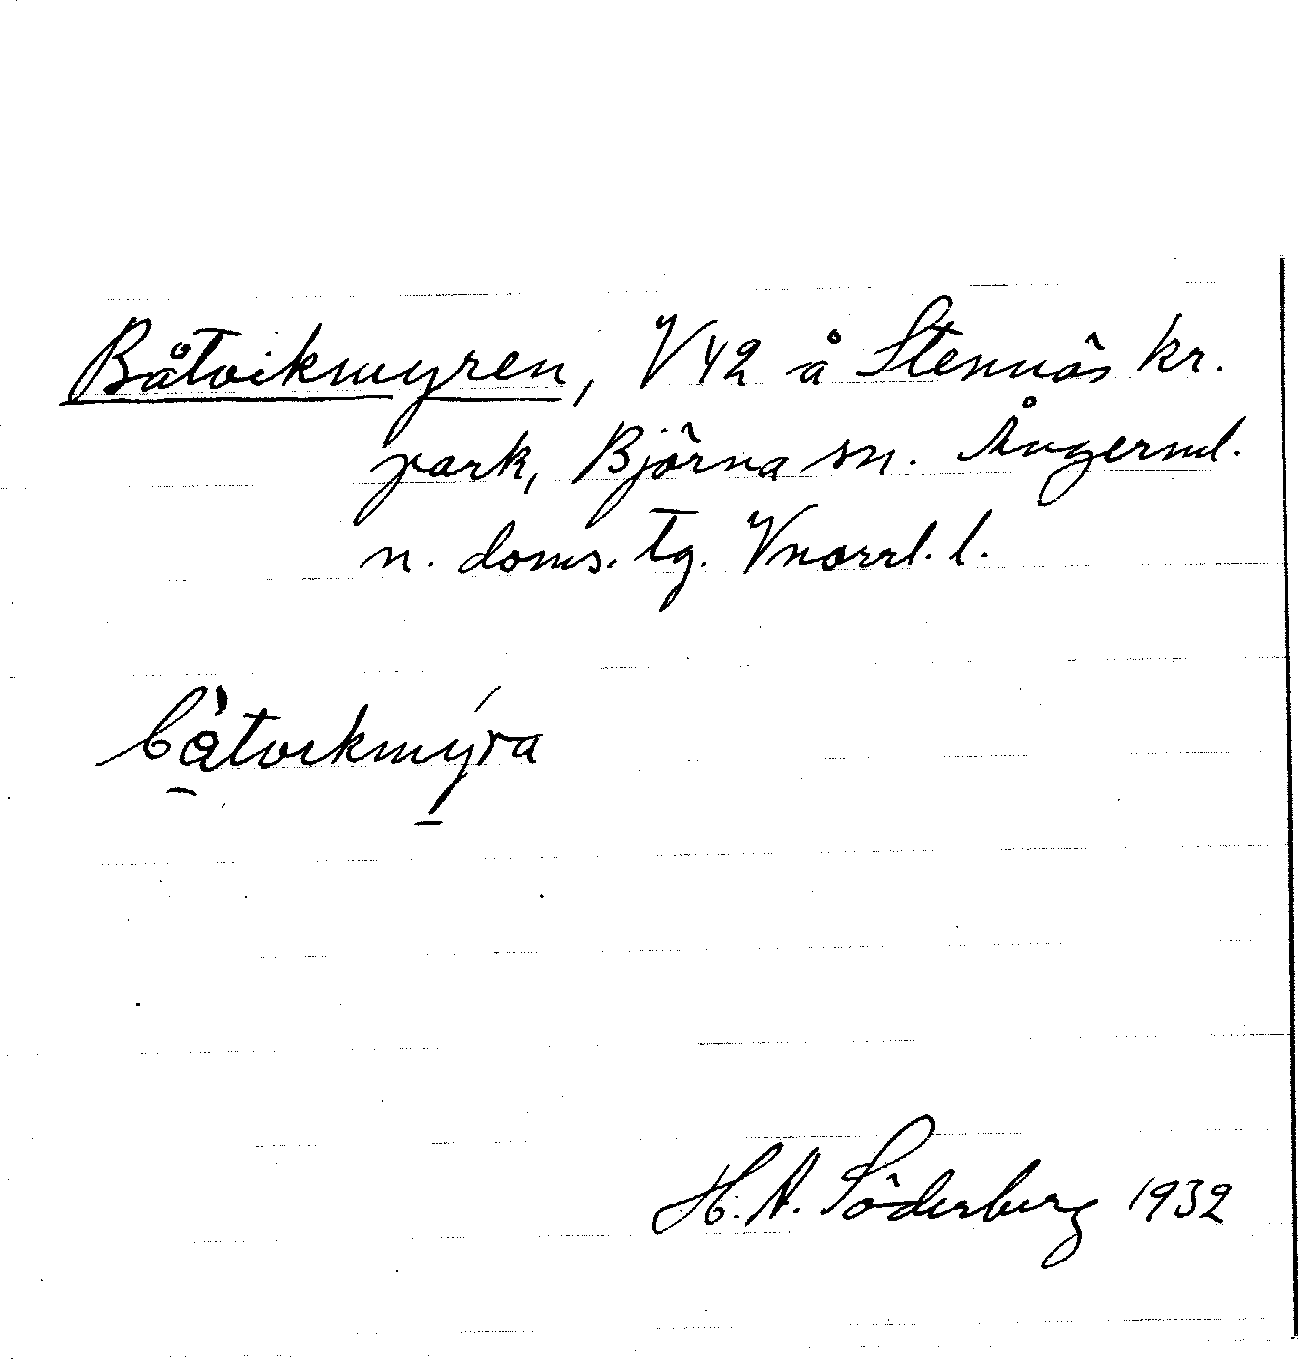 Båtvikmyren, V42 å Stennäs kr.
park, Björna sn. Ångerml.
n. doms. tg. Vnorrl. l.
båtvikmýra
H. A. Söderberg 1932